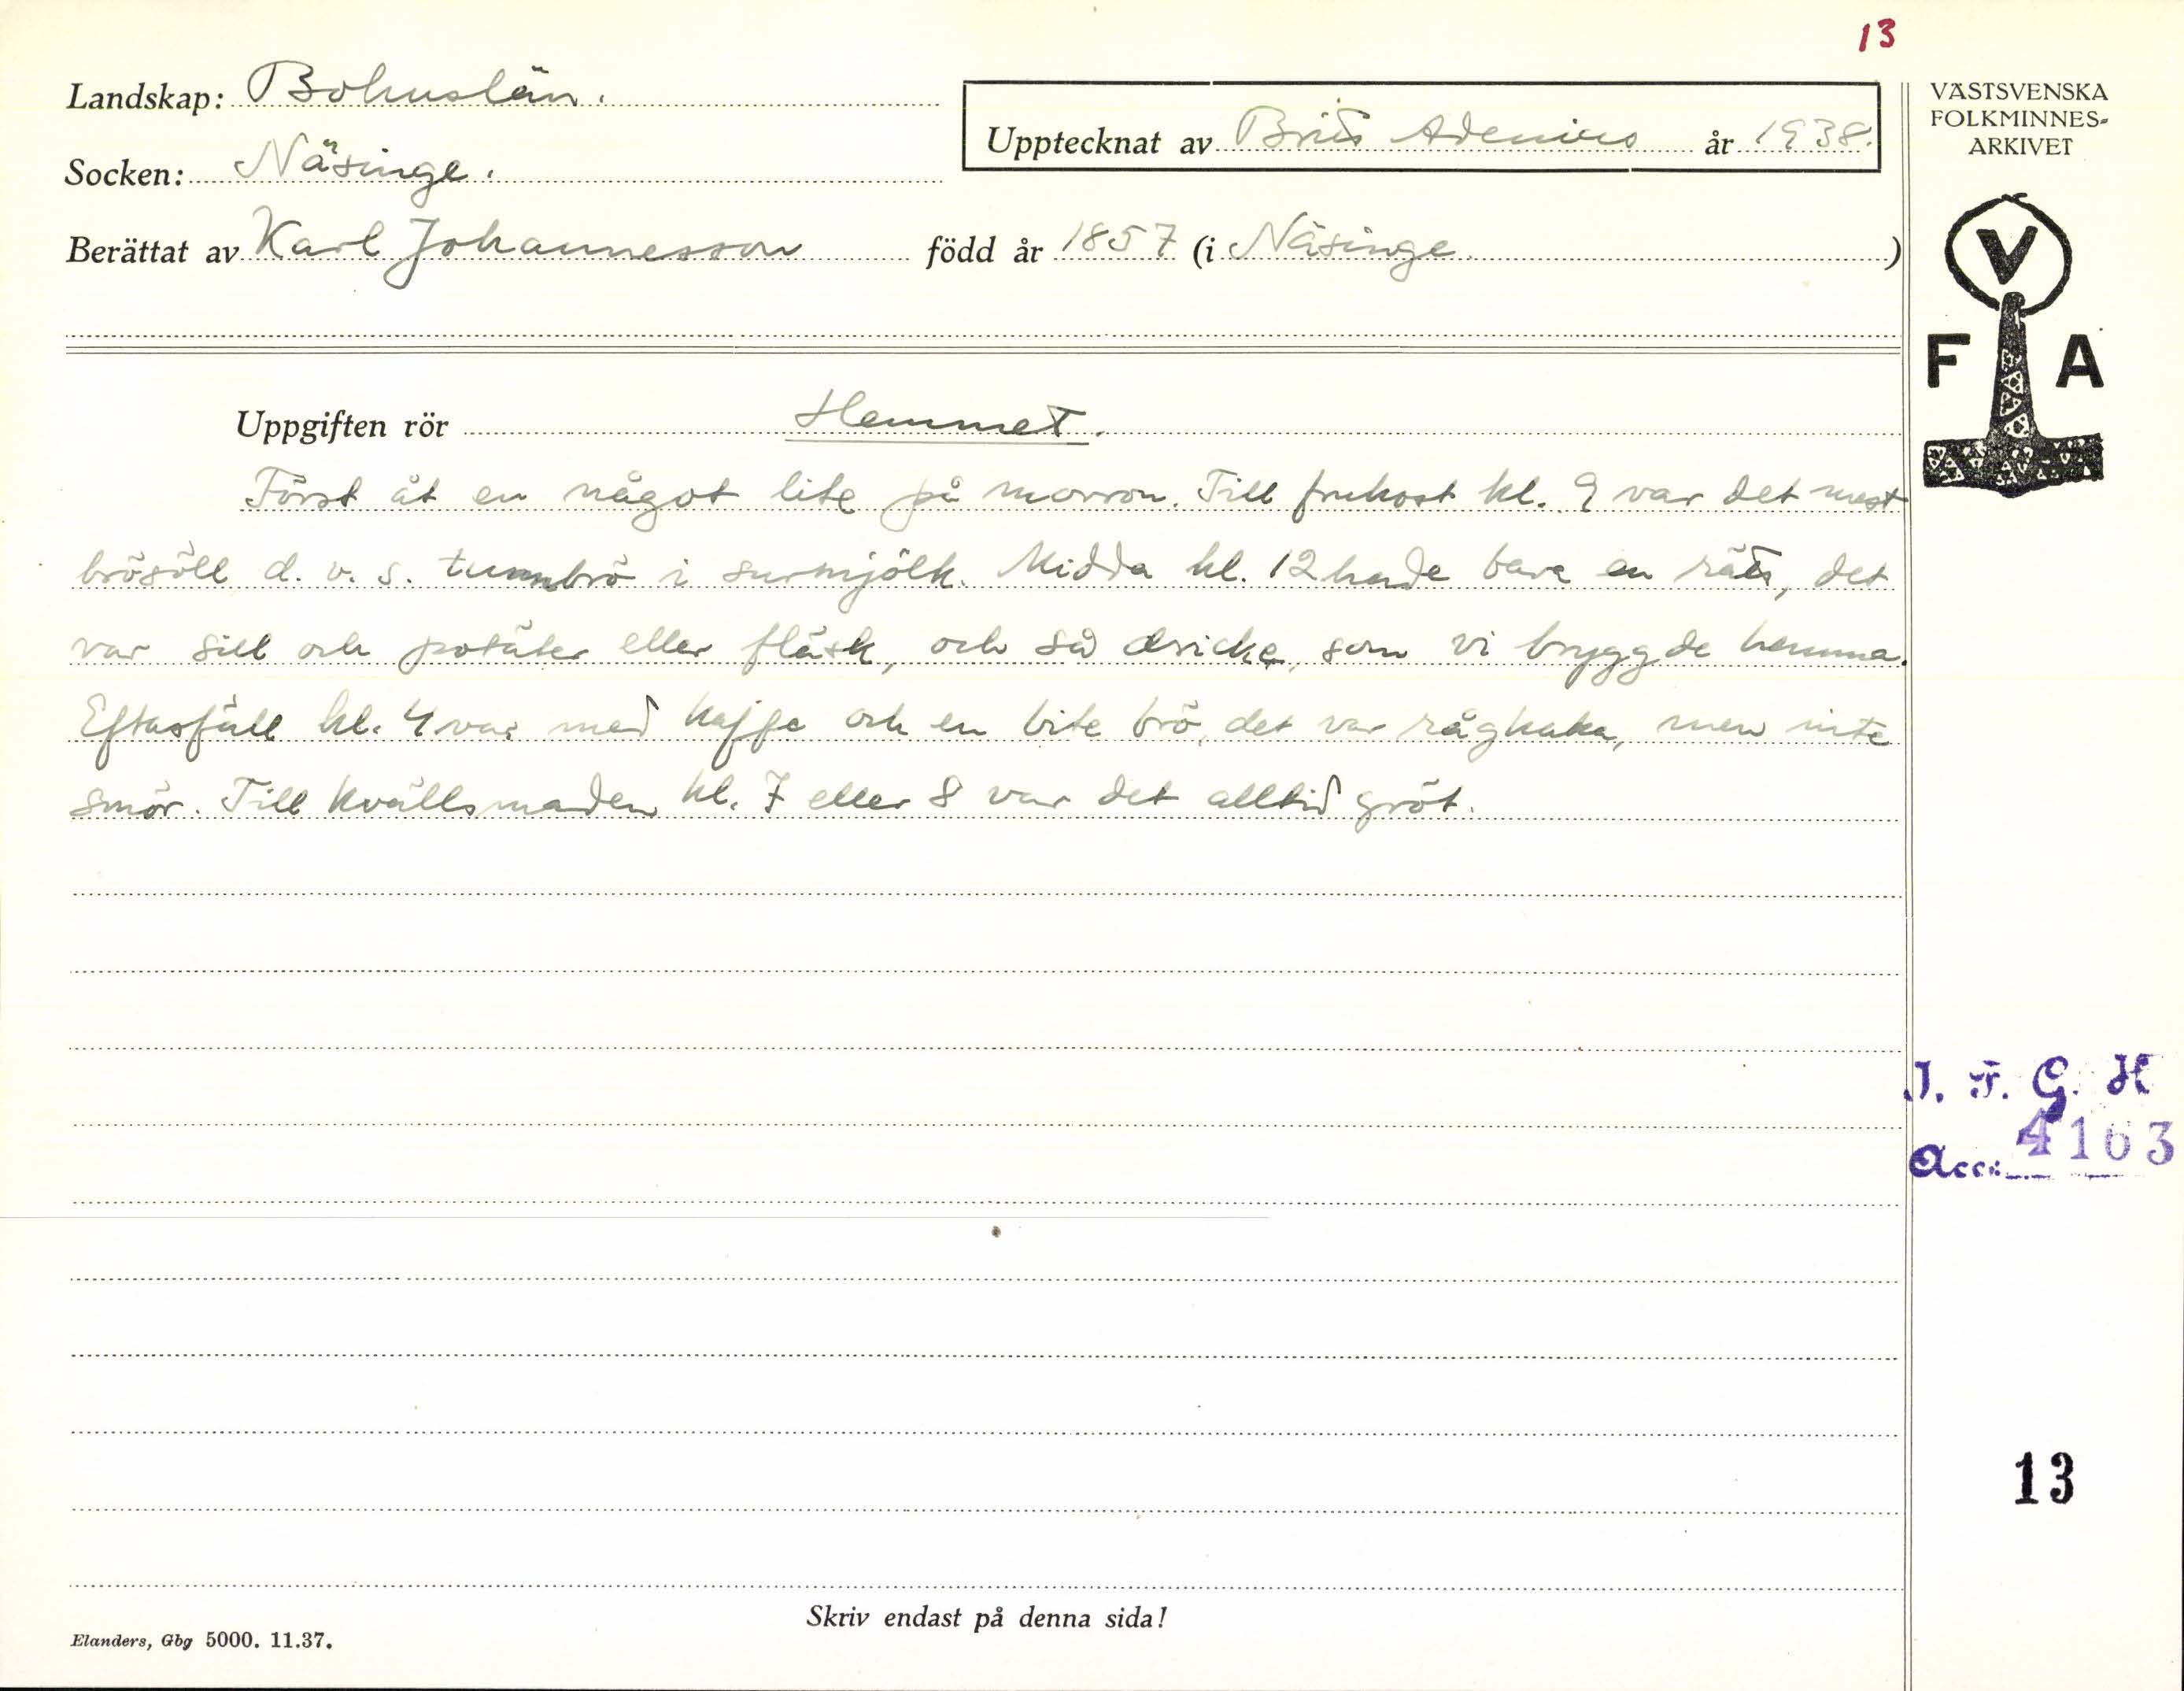 13
Landskap: Bohuslän.
Upptecknat av Brita Adenius år 1938.
VÄSTSVENSKA
FOLKMINNES-
ARKIVET
Socken: Näsinge.
Berättat av Karl Johannesson född år 1857 (i Näsinge )
V
F A
Uppgiften rör Hemmet.
Först åt en något lite på morron. Till frukost kl. 9 var det mest
brösöll d. v. s. tunnbrö i surmjölk. Midda kl. 12 hade bare en rätt, det
var sill och potäter eller fläsk, och så dricke, som vi bryggde hemma.
Eftasfäll kl. 4 var med kaffe och en bite brö, det var rågkaka, men inte
smör. Till kvällsmaden kl. 7 eller 8 var det alltid gröt.
I. F. G. H
Acc: 4163
13
Skriv endast på denna sida!
Elanders, Gbg 5000. 11.37.